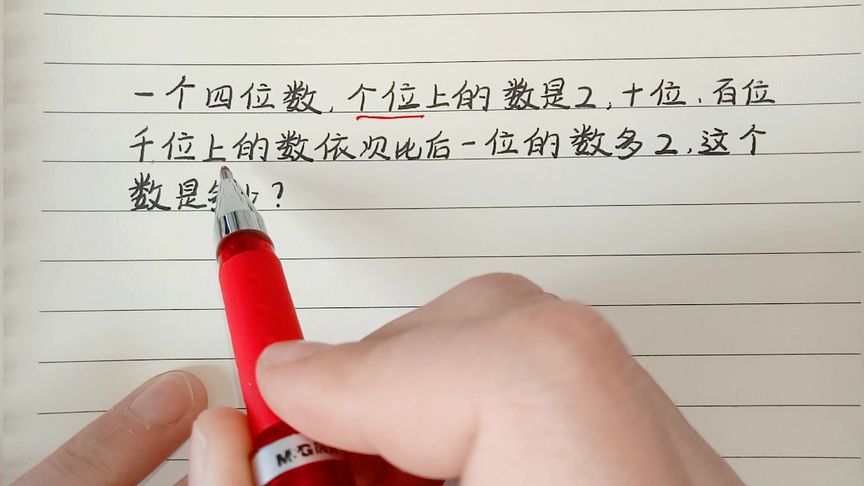 一个四位数,个位上的数是2,十位、百位
千位上的数依次比后一位的数多2,这个
数是 ?
M&G